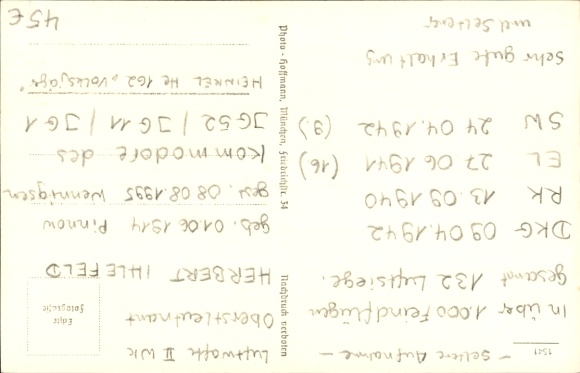 1541
- seltene Aufnahme -
In über 1.000 Feindflügen
Gesamt 132 Luftsiege.
DKG 09.04.1942
RK 13.09.1940
EL 27.06.1941 (16)
SW 24.04.1942 (9.)
Sehr gute Erhaltung
und Seltener
Nachdruck verboten
Photo-Hoffmann, München, Friedrichstr. 34
Echte
Fotografie
Luftwaffe II WK
Oberstleutnant
HERBERT IHLEFELD
geb. 01.06.1914 Pinnow
gest. 08.08.1995 Wennigsen
Kommodore des
JG 52 / JG 11 / JG 1
HEINKEL He 162 „Volksjäger"
45€